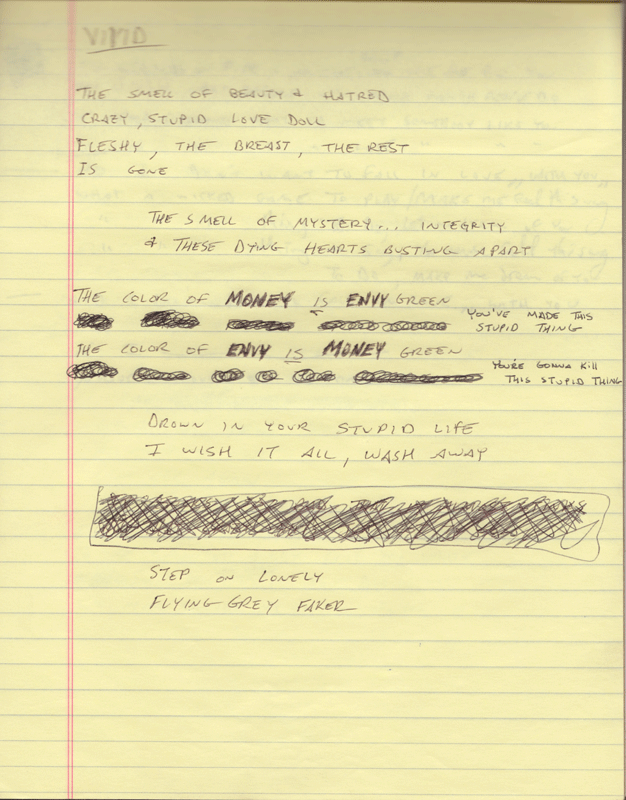 THE SMELL OF BEAUTY & HATRED
CRAZY, STUPID LOVE DOLL
FLESHY, THE BREAST, THE REST
IS GONE
THE SMELL OF MYSTERY... INTEGRITY
& THESE DYING HEARTS BUSTING APART
THE COLOR OF MONEY IS ENVY GREEN
YOU'VE MADE THIS
STUPID THING
THE COLOR OF ENVY IS MONEY GREEN
YOU'RE GONNA KILL
THIS STUPID THING
DROWN IN YOUR STUPID LIFE
I WISH IT ALL, WASH AWAY
STEP ON LONELY
FLYING GREY FAKER